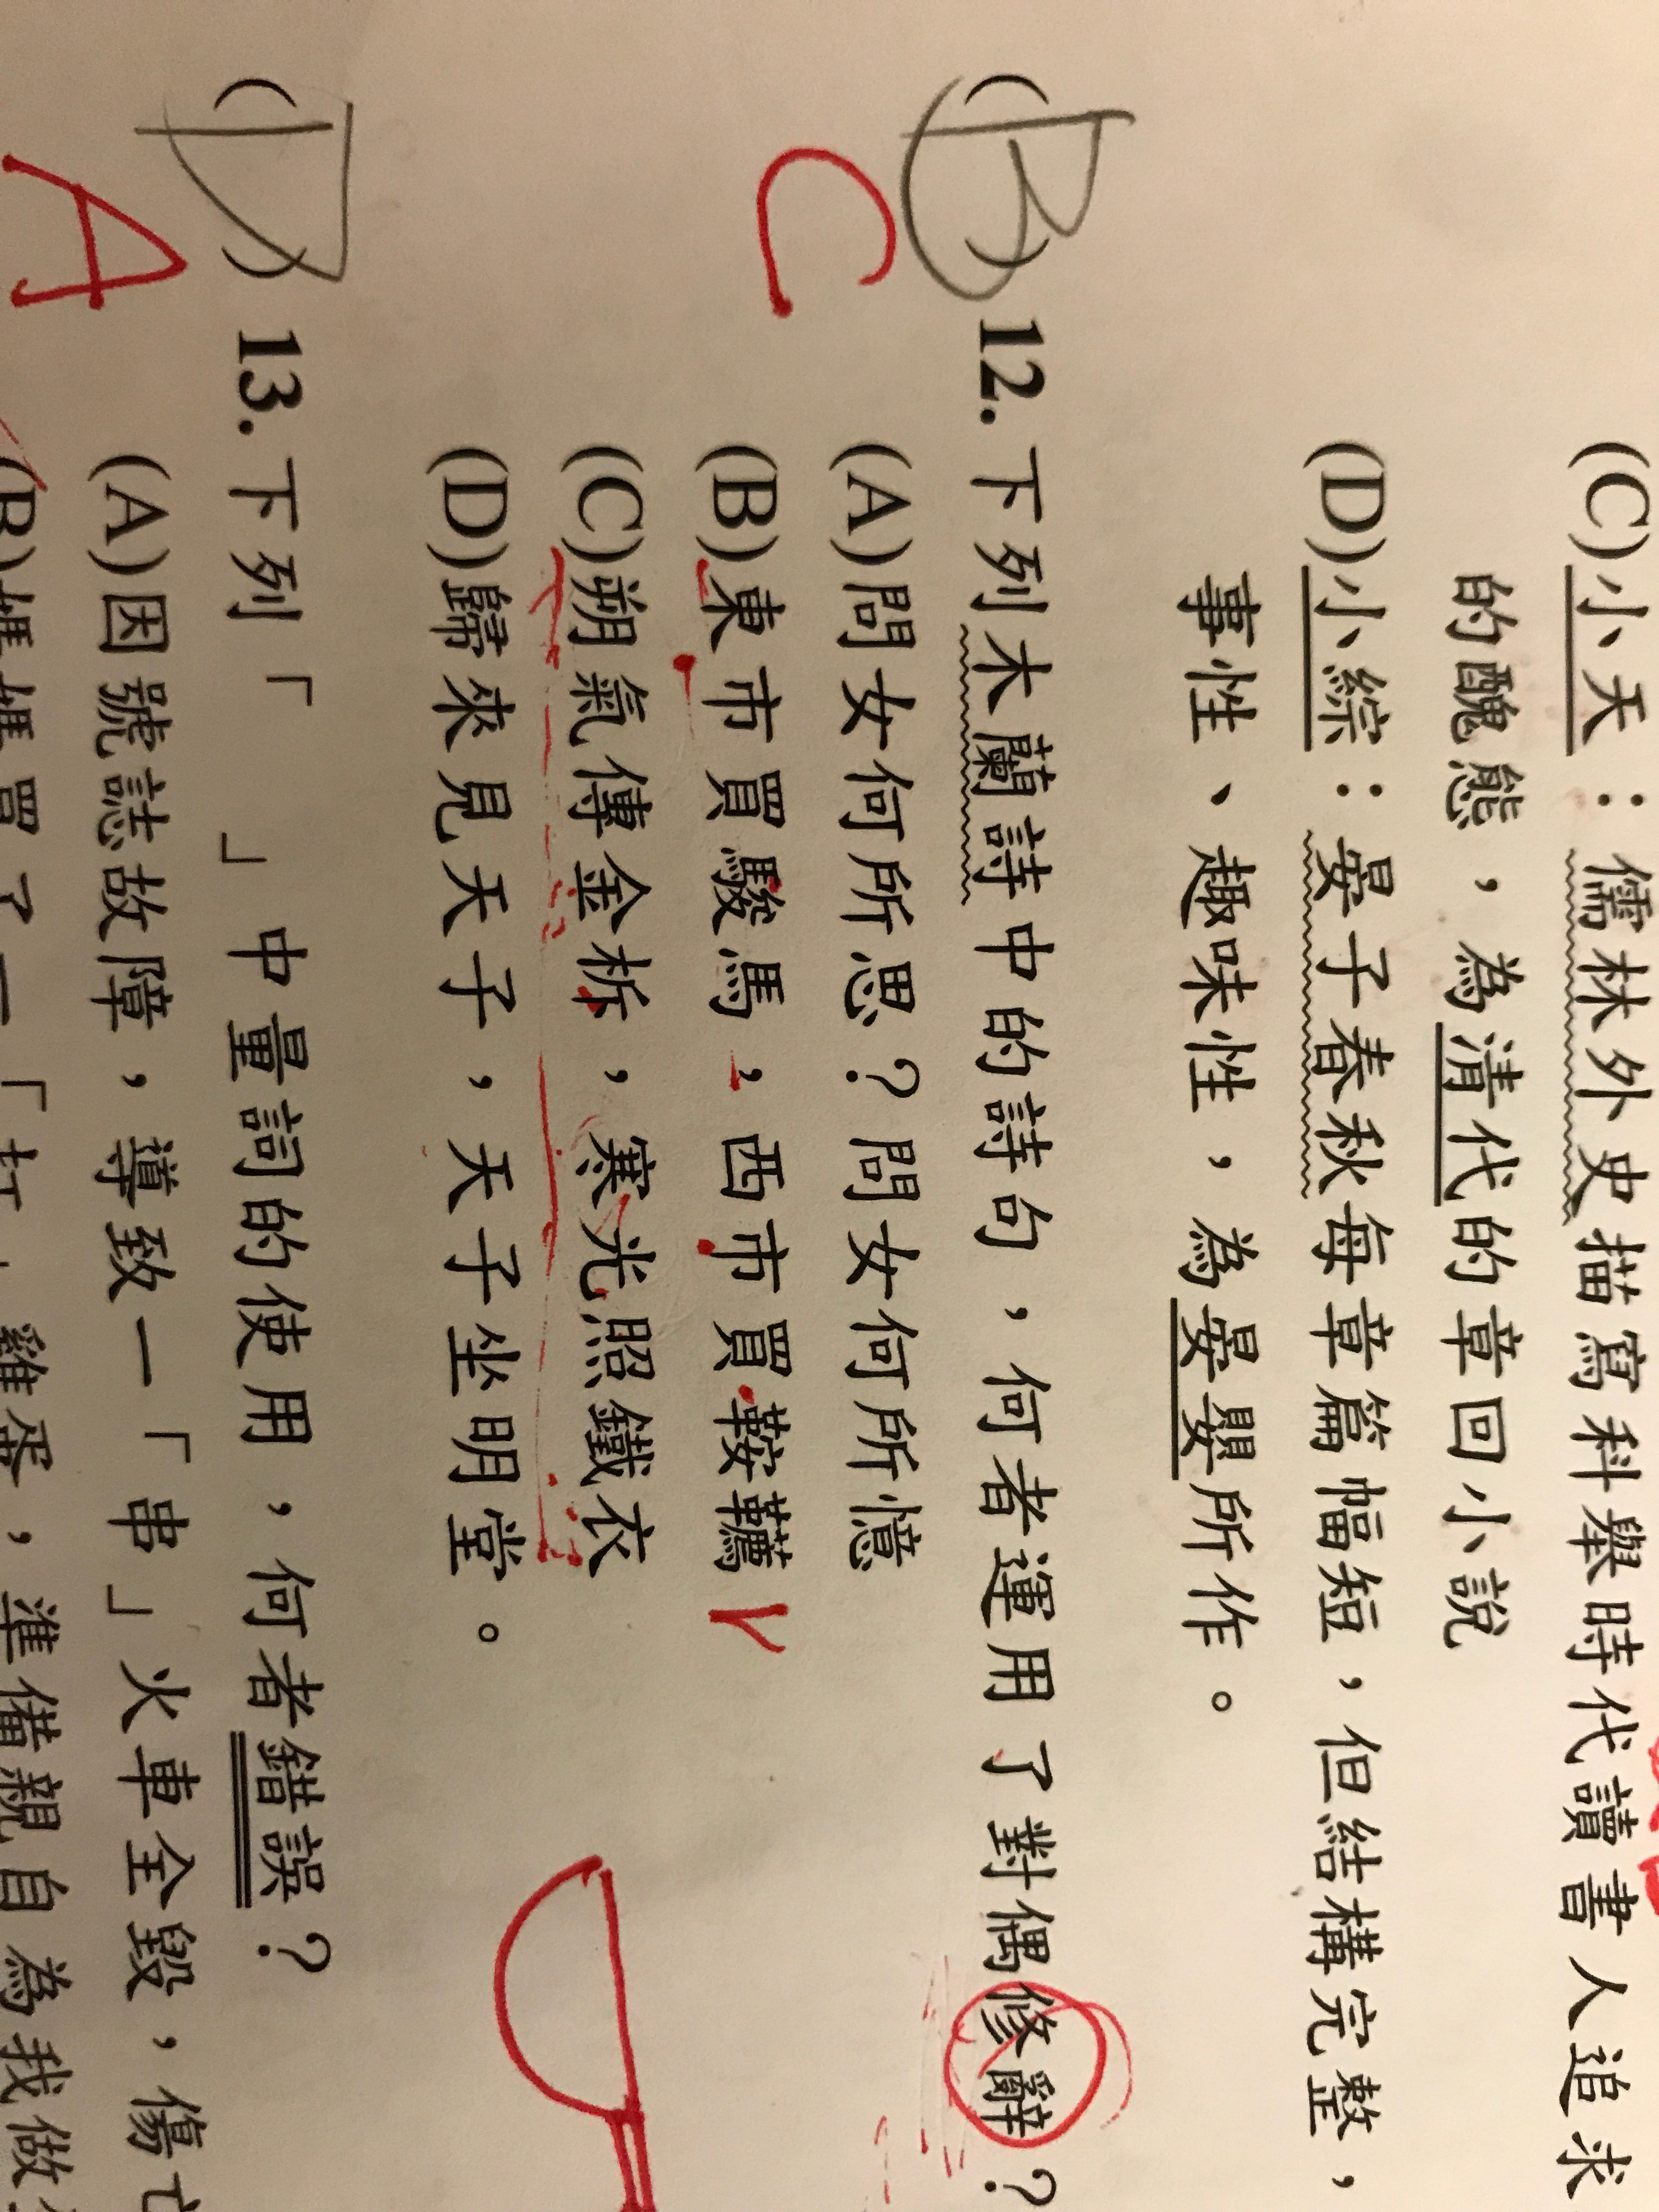 (C)小天：儒林外史描寫科舉時代讀書人追求
的醜態，為清代的章回小說
(D)小綜：晏子春秋每章篇幅短，但結構完整，
事性、趣味性，為晏嬰所作。
(B)12.下列木蘭詩中的詩句，何者運用了對偶修辭？
C
(A)問女何所思？問女何所憶
(B)東市買駿馬，西市買鞍韉
(C)朔氣傳金柝，寒光照鐵衣
(D)歸來見天子，天子坐明堂。
(D)13.下列「　」中量詞的使用，何者錯誤？
A
(A)因號誌故障，導致一「串」火車全毀，傷亡
(B)媽媽買了一「打」雞蛋，準備親自為我做